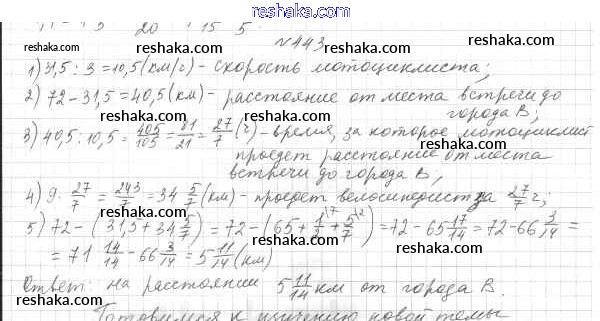 reshaka.com
20 15 5.
№443
reshaka.com reshaka.com reshaka.com
1) 31,5 : 3 = 10,5 (км/г) - скорость мотоциклиста;
reshaka.com reshaka.com
2) 72 - 31,5 = 40,5 (км) - расстояние от места встречи до
города В;
3) 40,5 : 10,5 = 405/105 = 81/21 = 27/7 (г) - время, за которое мотоциклист
reshaka.com reshaka.com reshaka.com
проедет расстояние от места
встречи до города В,
reshaka.com reshaka.com
4) 9 · 27/7 = 243/7 = 34 5/7 (км) - проедет велосипедист за 27/7 г;
reshaka.com reshaka.com reshaka.com
5) 72 - (31,5 + 34 5/7) = 72 - (65 + 1/2 + 5/7) = 72 - 65 17/14 = 72 - 66 3/14 =
= 71 14/14 - 66 3/14 = 5 11/14 (км)
reshaka.com reshaka.com
Ответ: на расстоянии 5 11/14 км от города В.
reshaka.com reshaka.com reshaka.com
Готовимся к изучению новой темы